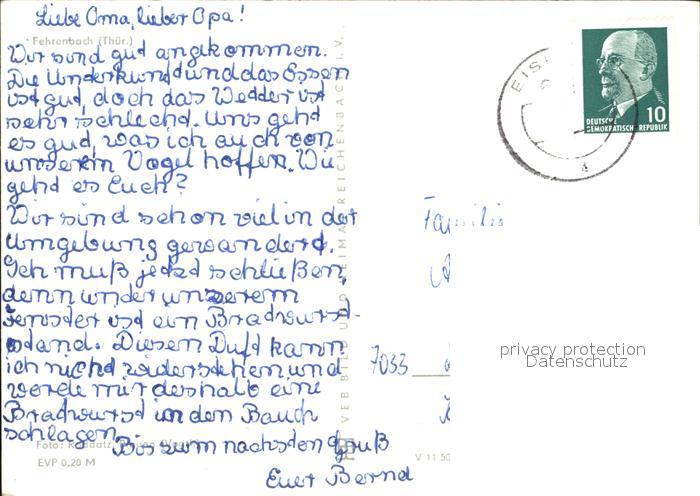 Liebe Oma, lieber Opa!
Fehrenbach (Thür.)
Wir sind gut angekommen.
Die Unterkunft und das Essen
ist gut, doch das Wetter ist
sehr schlecht. Uns geht
es gut, was ich auch von
unserem Vogel hoffen. Wie
geht es Euch?
Wir sind schon viel in der
Umgebung gewandert.
Ich muß jetzt schließen,
denn unter unserem
Fenster ist ein Bratwurst-
stand. Diesen Duft kann
ich nicht widerstehen und
werde mir deshalb eine
Bratwurst in den Bauch
schlagen.
Bis zum nächsten Gruß
Euer Bernd
Foto:
EVP 0,20 M
VEB BILD UND HEIMAT REICHENBACH I. V.
V 11 50
EIS
DEUTSCHE
DEMOKRATISCHE REPUBLIK
10
Familie
7033
privacy protection
Datenschutz